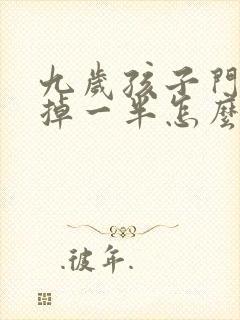 九歲孩子門
掉一半怎麼
.彼年.